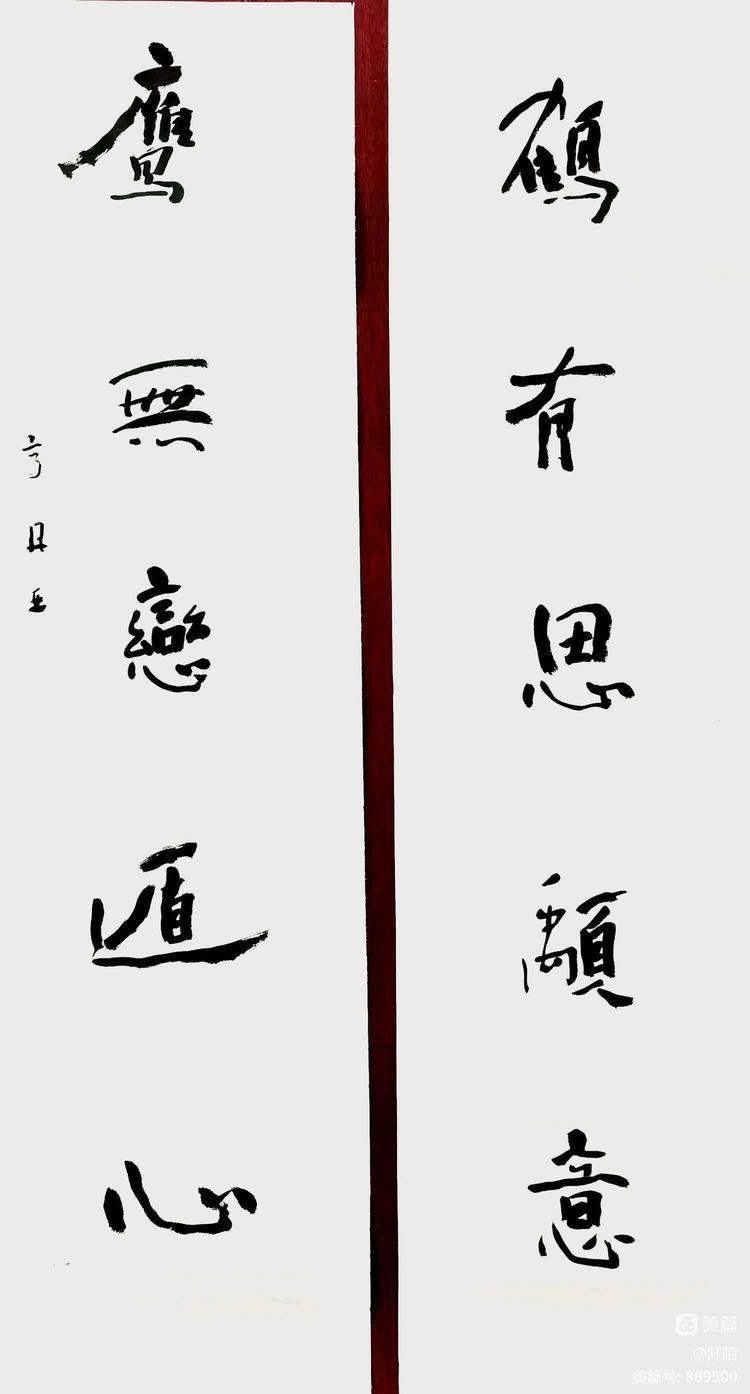 鹤有思顧意
鹰無戀遁心
美篇
@阡陌
美篇号: 889500